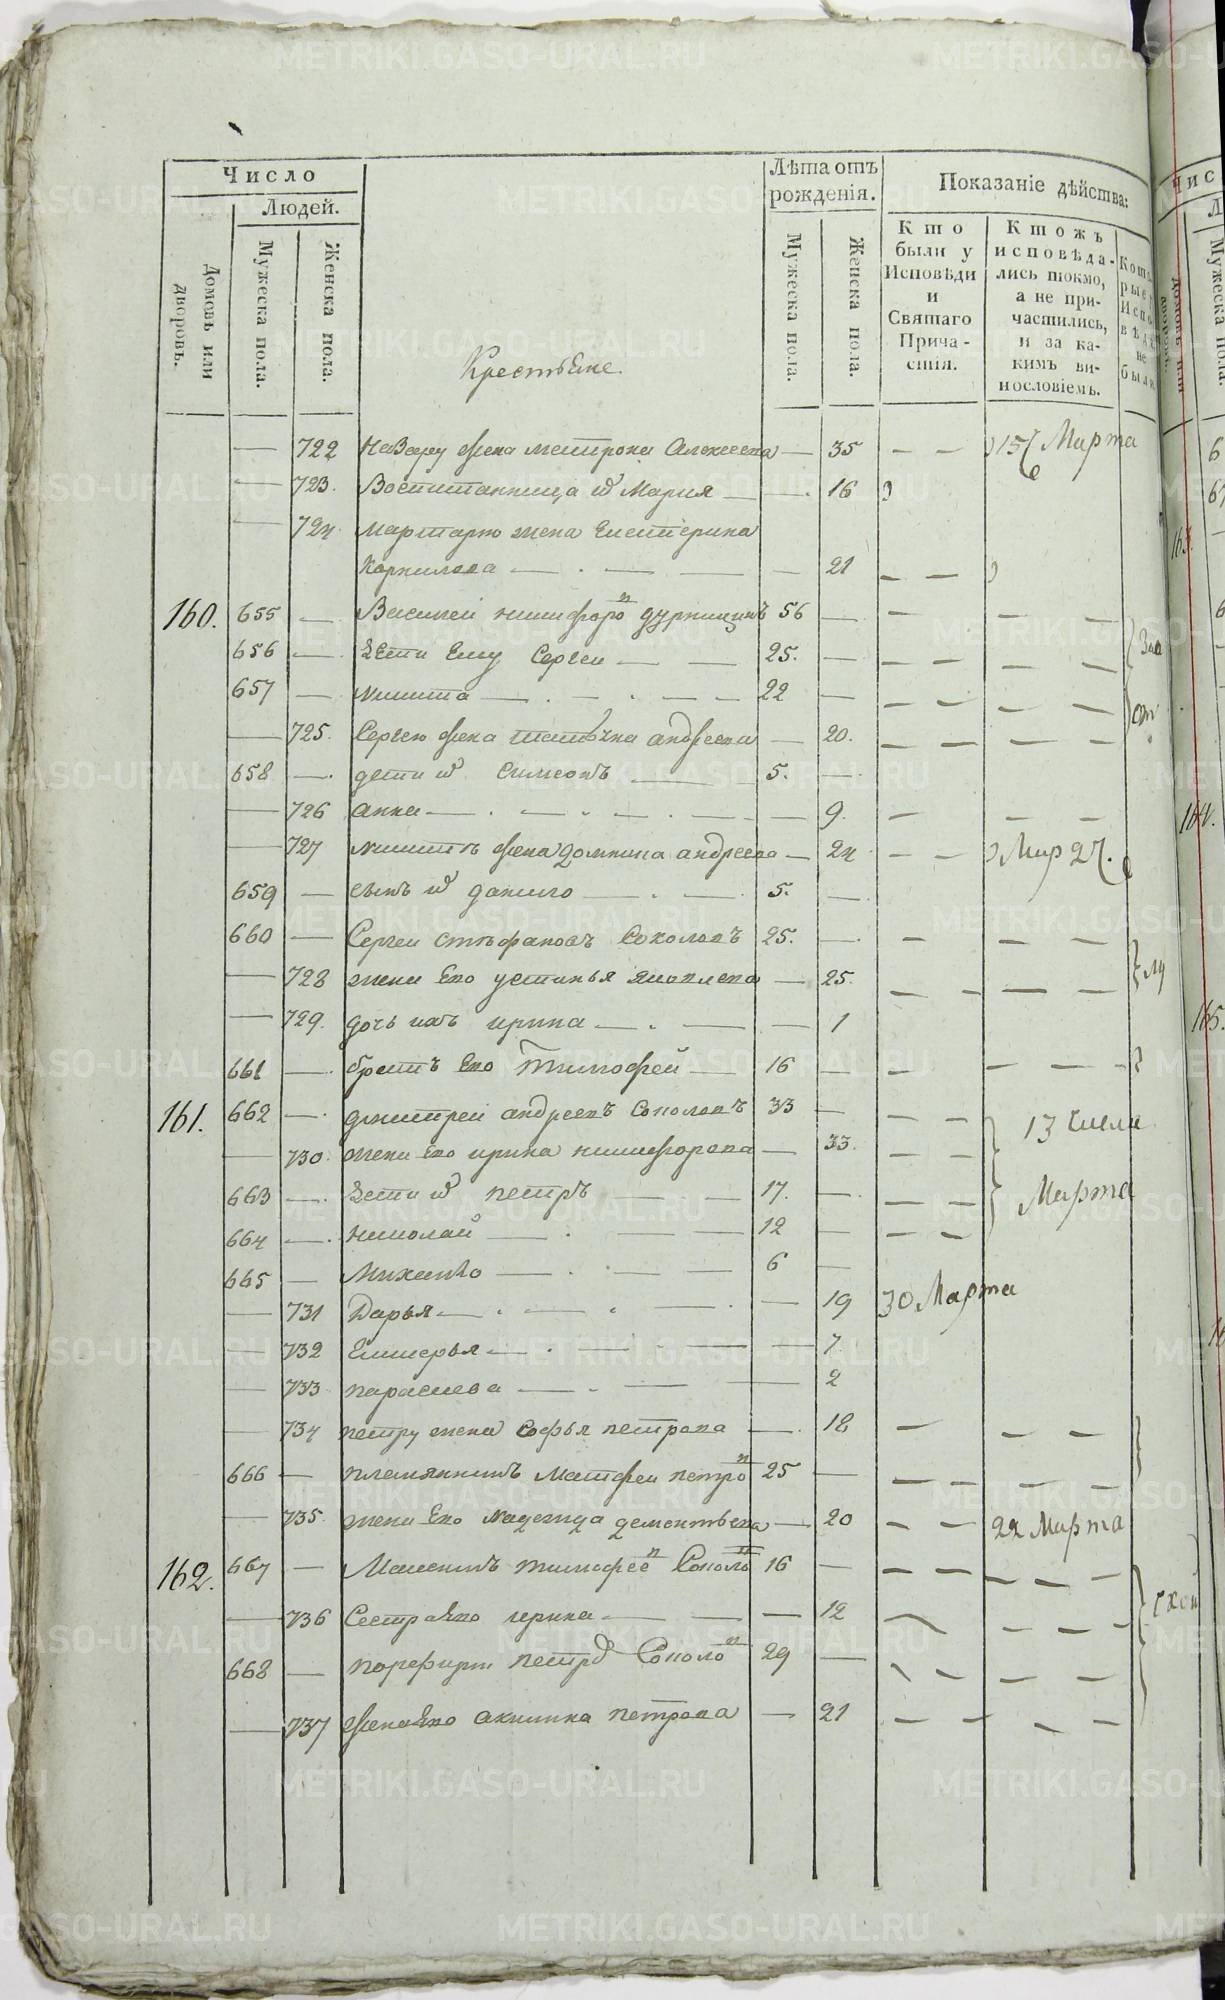 Число
Людей.
Домовъ или дворовъ.
Мужеска пола.
Женска пола.
Лѣта отъ рожденія.
Мужеска пола.
Женска пола.
Показаніе дѣйства:
Кто были у Исповѣди и Святаго Причастія.
Ктожъ исповѣдались токмо, а не причастились, и за какимъ винословіемъ.
Крестьяне.
722 жена Алексеева 35 15 Марта
723. Воспитанница Мария 16
724 жена Екатерина
Корнилова 21
160. 655 Василей никифоро 56
656 дѣти Ему Сергеи 25.
657 никита 22
725. Сергею жена андреева 20.
658 дети симеонъ 5.
726 анна 9.
727 жена домнина андреева 24 Мар 27.
659 сынъ данило 5.
660 Сергеи стефановъ Соколовъ 25.
728 жена Его устинья яковлева 25
729. дочь ихъ ирина 1
661 братъ Его Тимофей 16
161. 662 дмитреи андреевъ Соколовъ 33 13 Числа
730 жена Его ирина никифорова 33. Марта
663 дѣти петръ 17.
664 николай 12
665 Михаило 6
731 Дарья 19 30 Марта
732 7
733 параскева 2
734 петру жена Софья петрова 18
666 племянникъ Матфеи петро 25
735. жена Его надежда дементьева 20 22 Марта
162. 667 тимофее Соколо 16
736 Сестра Его ирина 12
668 порфири Соколо 29
737 жена Его акилина петрова 21
METRIKI.GASO-URAL.RU